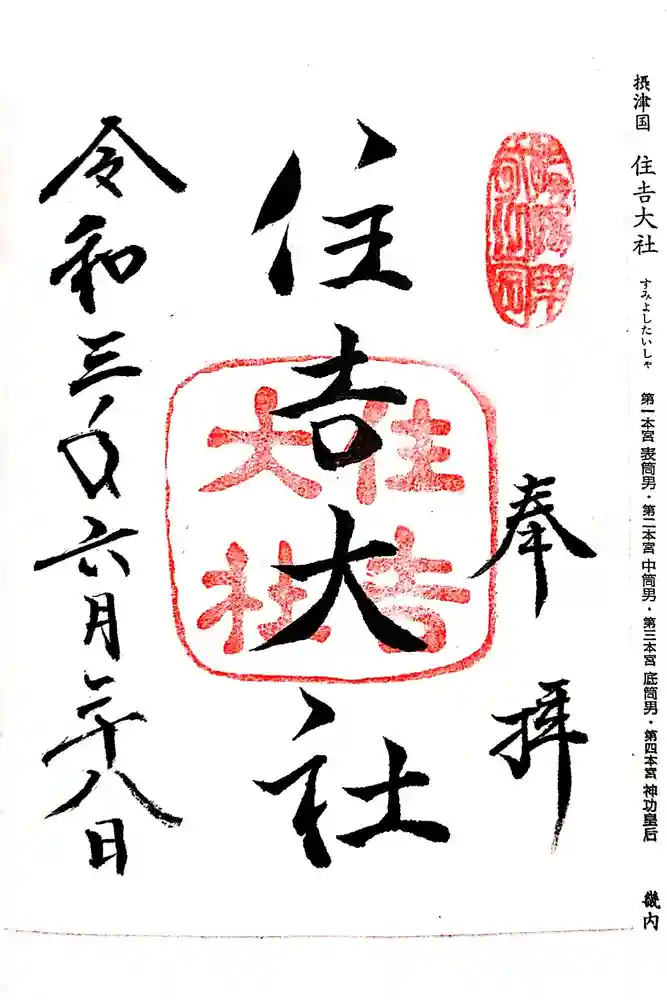 摂津国 住𠮷大社 すみよしたいしゃ 第一本宮 表筒男・第二本宮 中筒男・第三本宮 底筒男・第四本宮 神功皇后 畿内
奉拝
住𠮷大社
住吉
大社
令和三年六月二十八日